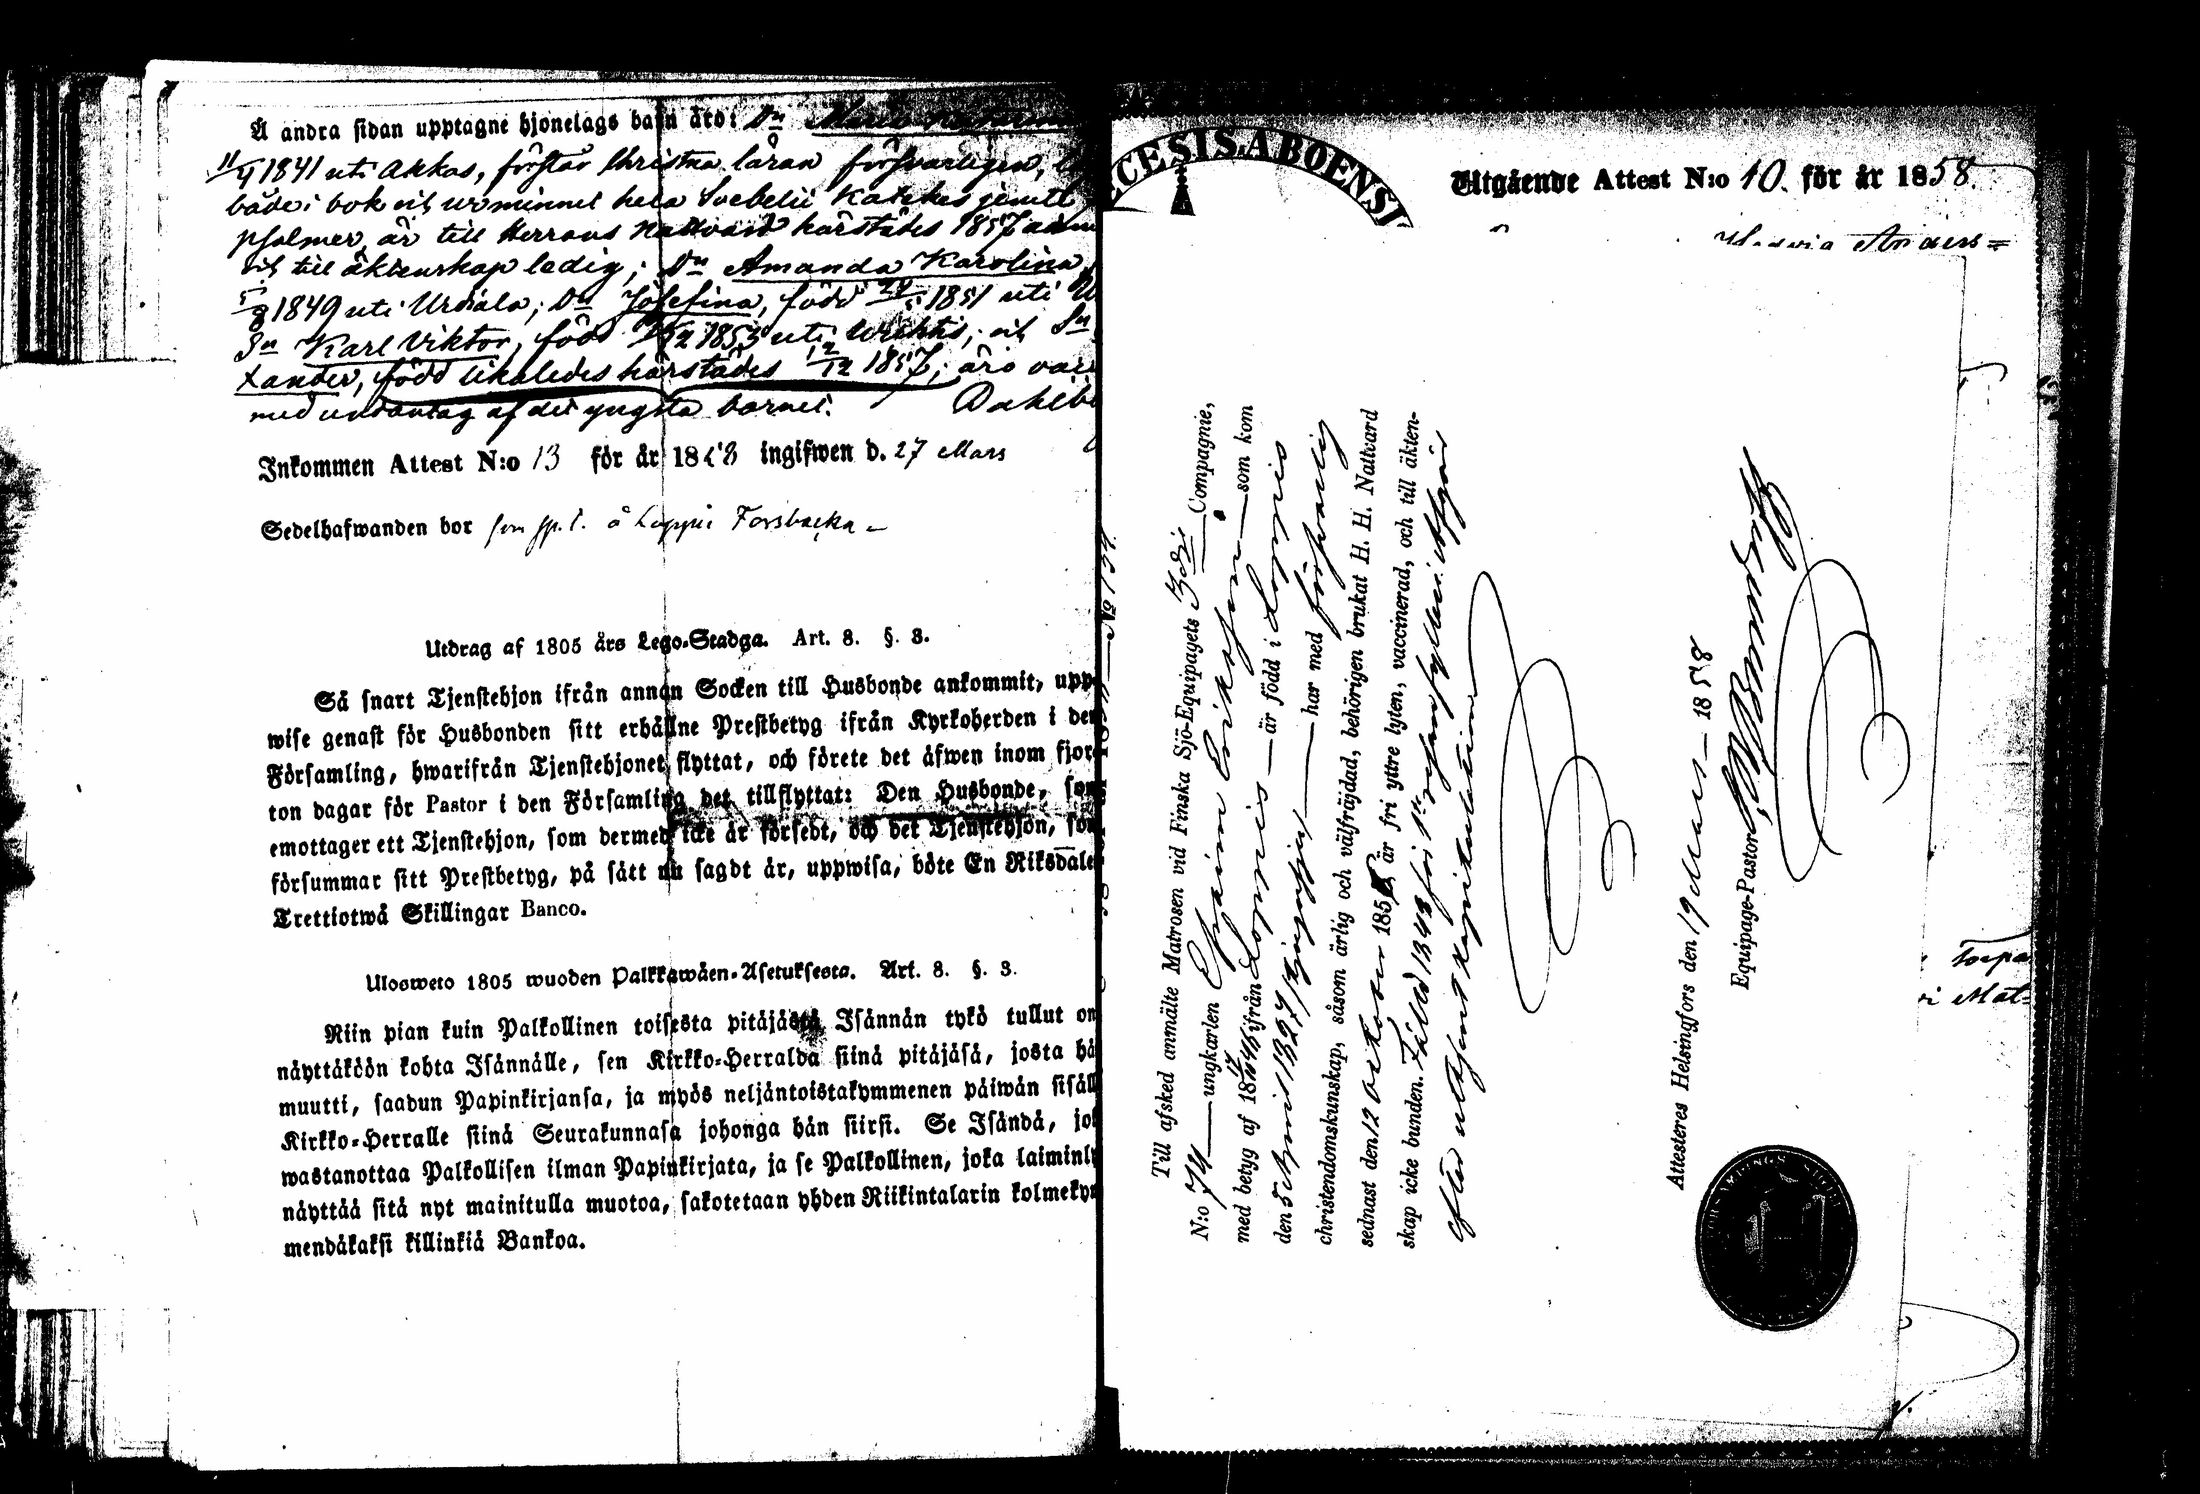 Å andra sidan upptagne hjonelags barn äro: Dn Maria
11/4 1841 uti Akkas, förstår Christna läran försvarligen,
både i bok och ur minnet hela Svebelii Katekes jemte
psalmer, är till Herrans Nattvard härstädes 1857
och till äktenskap ledig; Dn Amanda Karolina
5/8 1849 uti Urdiala; Dn Josefina, född 28/5 1851 uti
Sn Karl Viktor, född 1853 uti Wichtis; och Sn
xander, född likaledes härstädes 12/12 1857; äro
med undantag af det yngsta barnet.
Inkommen Attest N:o 13 för år 1858 ingifwen d. 27 Mars
Sedelhafwanden bor å Loppis Forsbacka
Utdrag af 1805 års Lego-Stadga. Art. 8. §. 3.
Så snart Tjenstehjon ifrån annan Socken till Husbonde ankommit, upp-
wise genast för Husbonden sitt erhållne Prestbetyg ifrån Kyrkoherden i den
Församling, hwarifrån Tjenstehjonet flyttat, och förete det äfwen inom fjor-
ton dagar för Pastor i den Församling det tillflyttat: Den Husbonde, som
emottager ett Tjenstehjon, som dermed icke är försedt, och det Tjenstehjon, som
försummar sitt Prestbetyg, på sätt nu sagdt är, uppwisa, böte En Riksdaler
Trettiotwå Skillingar Banco.
Ulosweto 1805 wuoden Palkkawäen-Asetuksesta. Art. 8. §. 3.
Niin pian kuin Palkollinen toisesta pitäjästä Isännän tykö tullut on
näyttäköön kohta Isännälle, sen Kirkko-Herralda siinä pitäjäsä, josta hä
muutti, saadun Papinkirjansa, ja myös neljäntoistakymmenen päiwän sisäll
Kirkko-Herralle siinä Seurakunnasa johonga hän siirsi. Se Isändä, jo
wastanottaa Palkollisen ilman Papinkirjata, ja se Palkollinen, joka laiminly
näyttää sitä nyt mainitulla muotoa, sakotetaan yhden Riikintalarin kolmeky
mendäkaksi killinkiä Bankoa.
CESIS ABOENSI
Utgående Attest N:o 10. för år 1858.
Till afsked anmälte Matrosen vid Finska Sjö-Equipagets Compagnie,
N:o 74 ungkarlen Efraim Eriksson som kom
med betyg af 18 ifrån Loppis är född i Loppis
den 5 April 1827 har med försvarlig
christendomskunskap, såsom ärlig och välfräjdad, behörigen brukat H. H. Nattvard
sednast den 12 October 185 är fri yttre lyten, vaccinerad, och till äkten-
skap icke bunden. Fälld 1848 för 1sta
efter utstånd Kapitulation
Attesteres Helsingfors den 19 Mars 1858
Equipage-Pastor
Torpa
Mat-